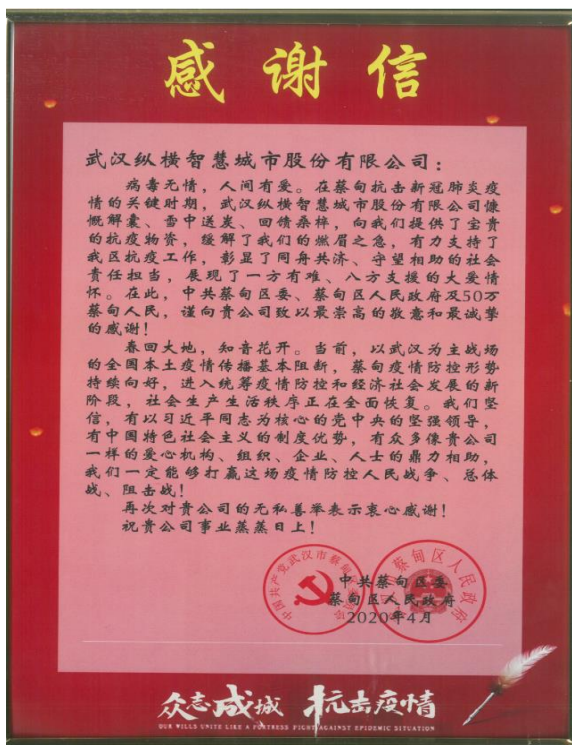 感谢信
武汉纵横智慧城市股份有限公司：
病毒无情，人间有爱。在蔡甸抗击新冠肺炎疫
情的关键时期，武汉纵横智慧城市股份有限公司慷
慨解囊、雪中送炭、回馈桑梓，向我们提供了宝贵
的抗疫物资，缓解了我们的燃眉之急，有力支持了
我区抗疫工作，彰显了同舟共济、守望相助的社会
责任担当，展现了一方有难、八方支援的大爱情
怀。在此，中共蔡甸区委、蔡甸区人民政府及50万
蔡甸人民，谨向贵公司致以最崇高的敬意和最诚挚
的感谢！
春回大地，知音花开。当前，以武汉为主战场
的全国本土疫情传播基本阻断，蔡甸疫情防控形势
持续向好，进入统筹疫情防控和经济社会发展的新
阶段，社会生产生活秩序正在全面恢复。我们坚
信，有以习近平同志为核心的党中央的坚强领导，
有中国特色社会主义的制度优势，有众多像贵公司
一样的爱心机构、组织、企业、人士的鼎力相助，
我们一定能够打赢这场疫情防控人民战争、总体
战、阻击战！
再次对贵公司的无私善举表示衷心感谢！
祝贵公司事业蒸蒸日上！
中共蔡甸区委
蔡甸区人民政府
2020年4月
众志成城 抗击疫情
OUR WILLS UNITE LIKE A FORTRESS FIGHT AGAINST EPIDEMIC SITUATION